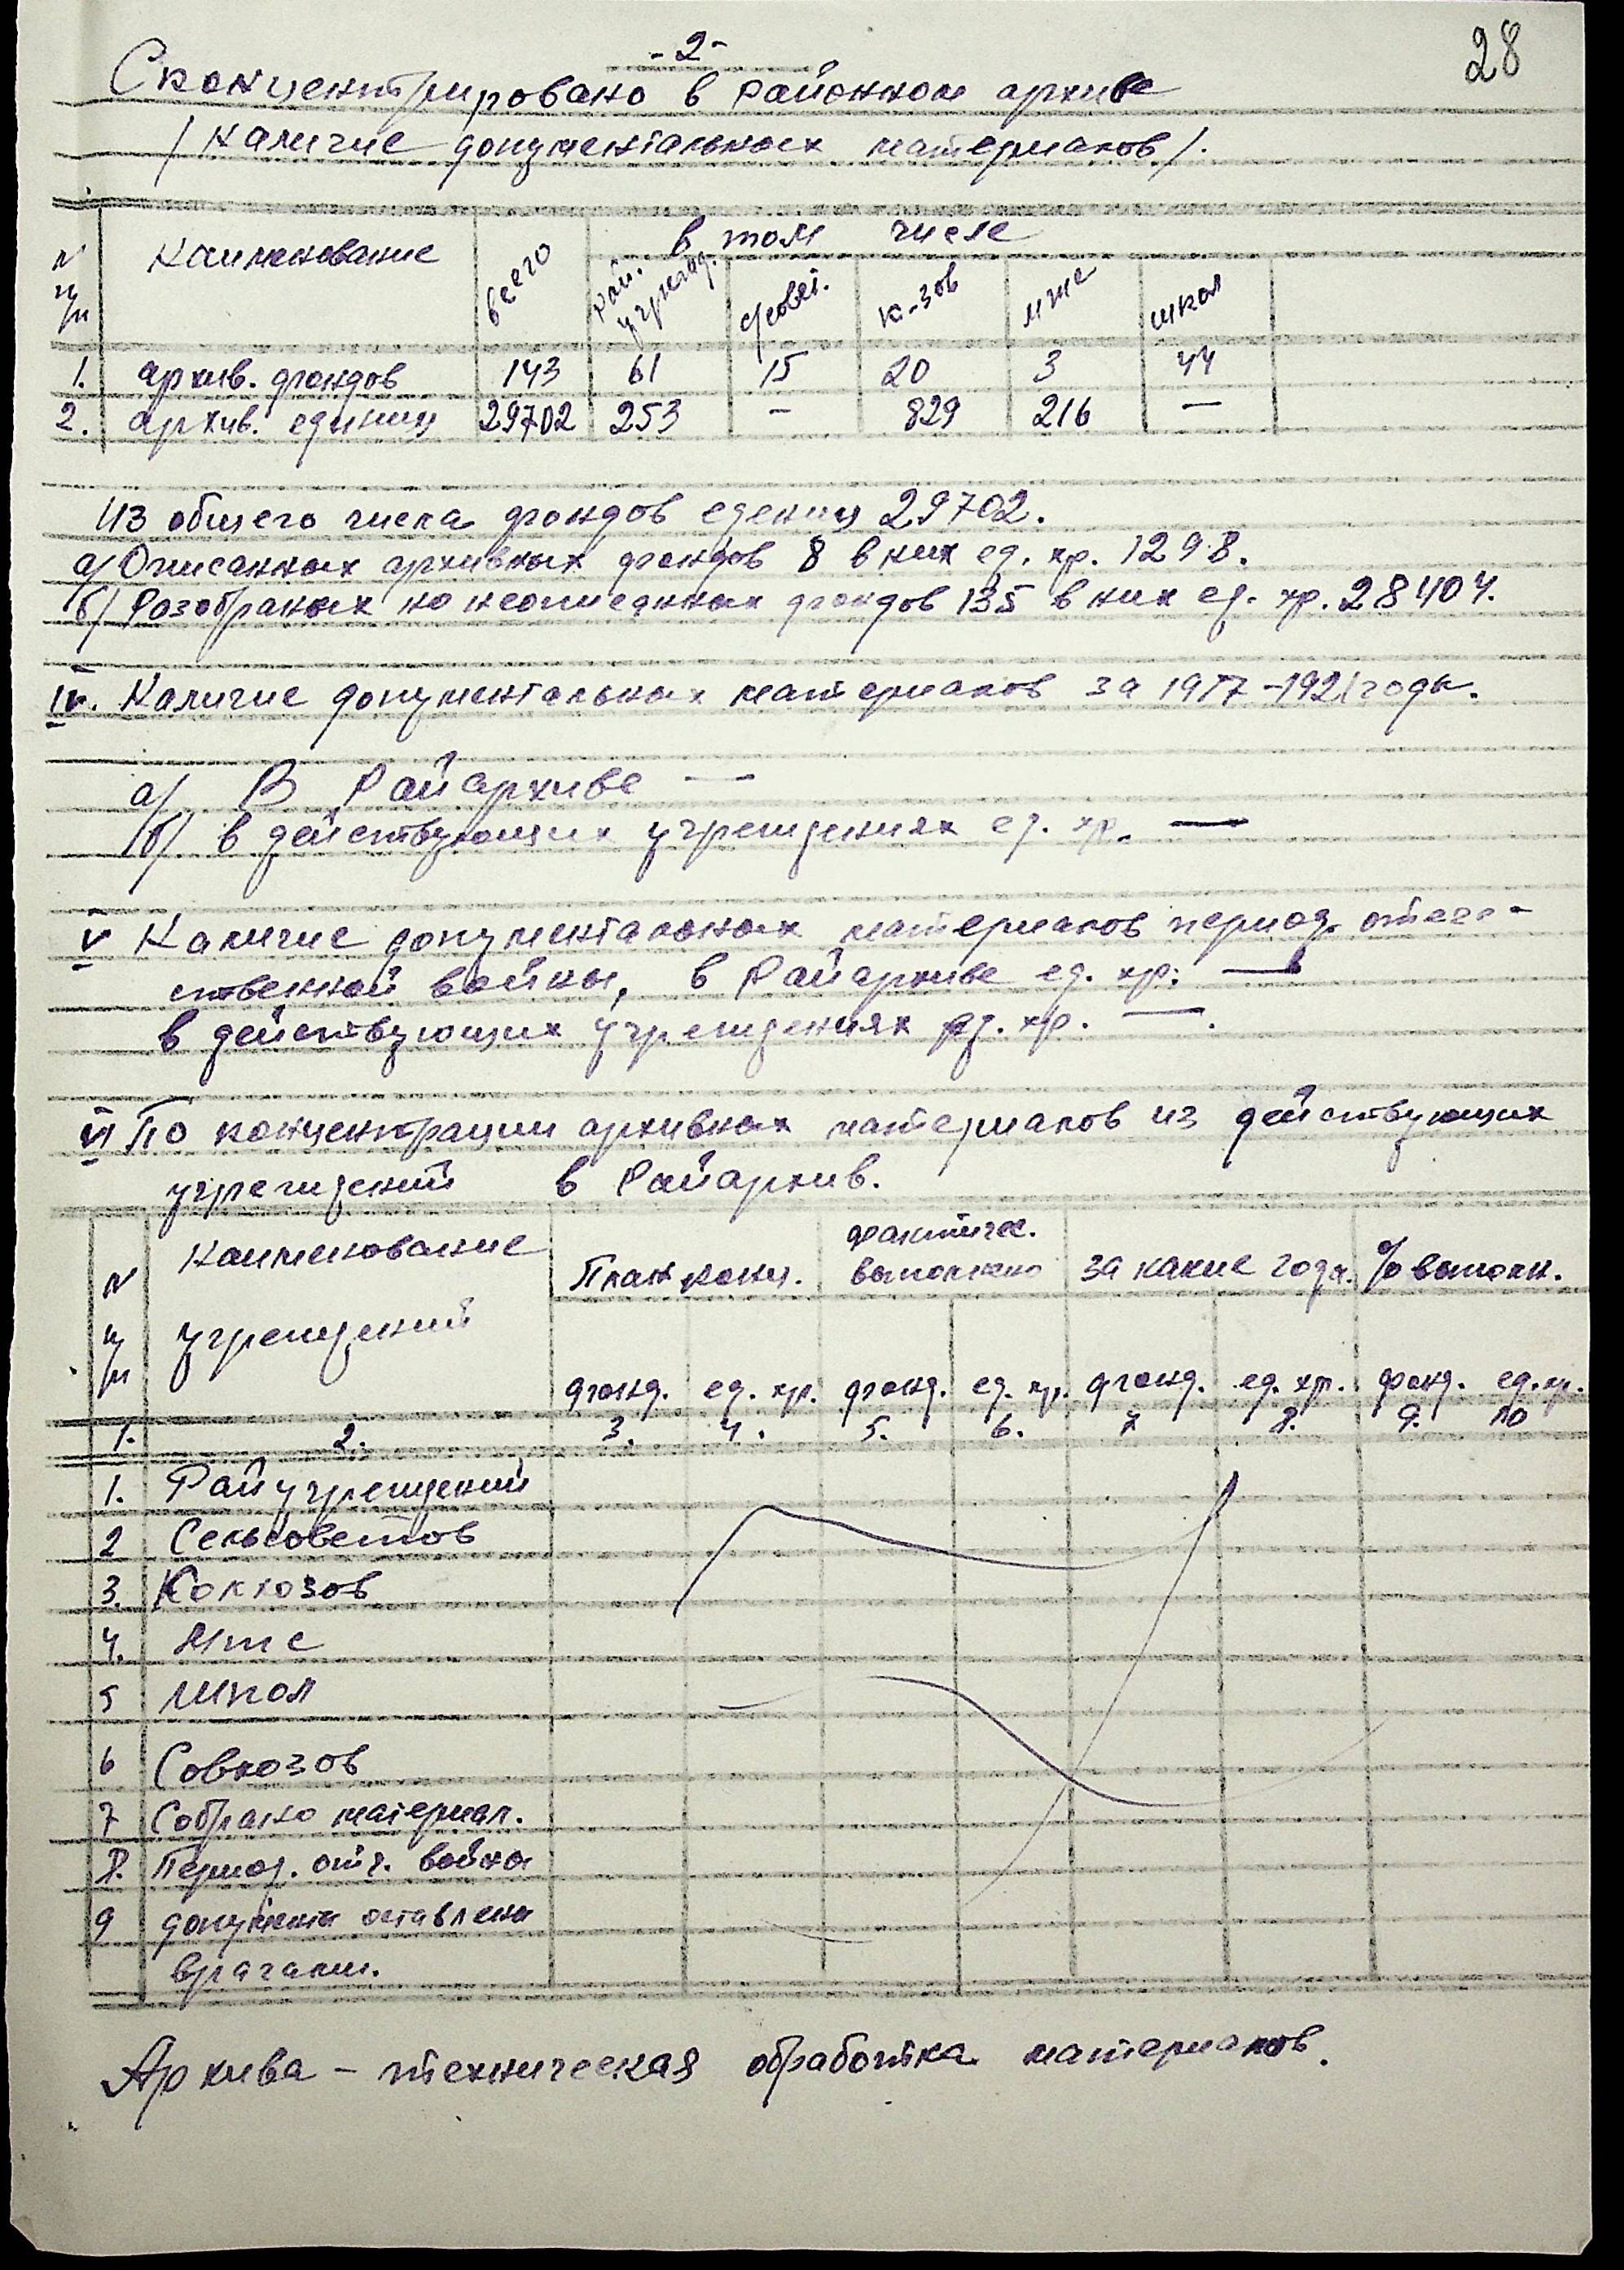 28
-2-
Сконцентрировано в районном архиве
/ наличие документальных материалов /.
N п/п Наименование всего в том числе
рай. учрежд. с/совет. к-зов мтс школ
1. архив. фондов 143 61 15 20 3 44
2. архив. единиц 29702 253 - 829 216 —
Из общего числа фондов едениц 29702.
а/ Описанных архивных фондов 8 в них ед. хр. 1298.
б/ Разобраных но неописанных фондов 135 в них ед. хр. 28404.
IV. Наличие документальных материалов за 1917-1921 годы.
а/ В Райархиве —
б/ в действующих учреждениях ед. хр. —
V Наличие документальных материалов период. отече-
ственной войны, в Райархиве ед. хр. —
в действующих учреждениях ед. хр. —.
VI По концентрации архивных материалов из действующих
учреждений в Райархив.
N п/п Наименование учреждений План конц. фактичес. выполнено за какие года. % выполн.
фонд. ед. хр. фонд. ед. хр. фонд. ед. хр. фонд. ед. хр.
1. 2. 3. 4. 5. 6. 7 8. 9. 10
1. Райучреждений
2 Сельсоветов
3. Колхозов
4. Мтс
5 Школ
6 Совхозов
7 Собрано материал.
8. Период. отч. войны
9 документы оставлены
врагами.
Архива - техническая обработка материалов.